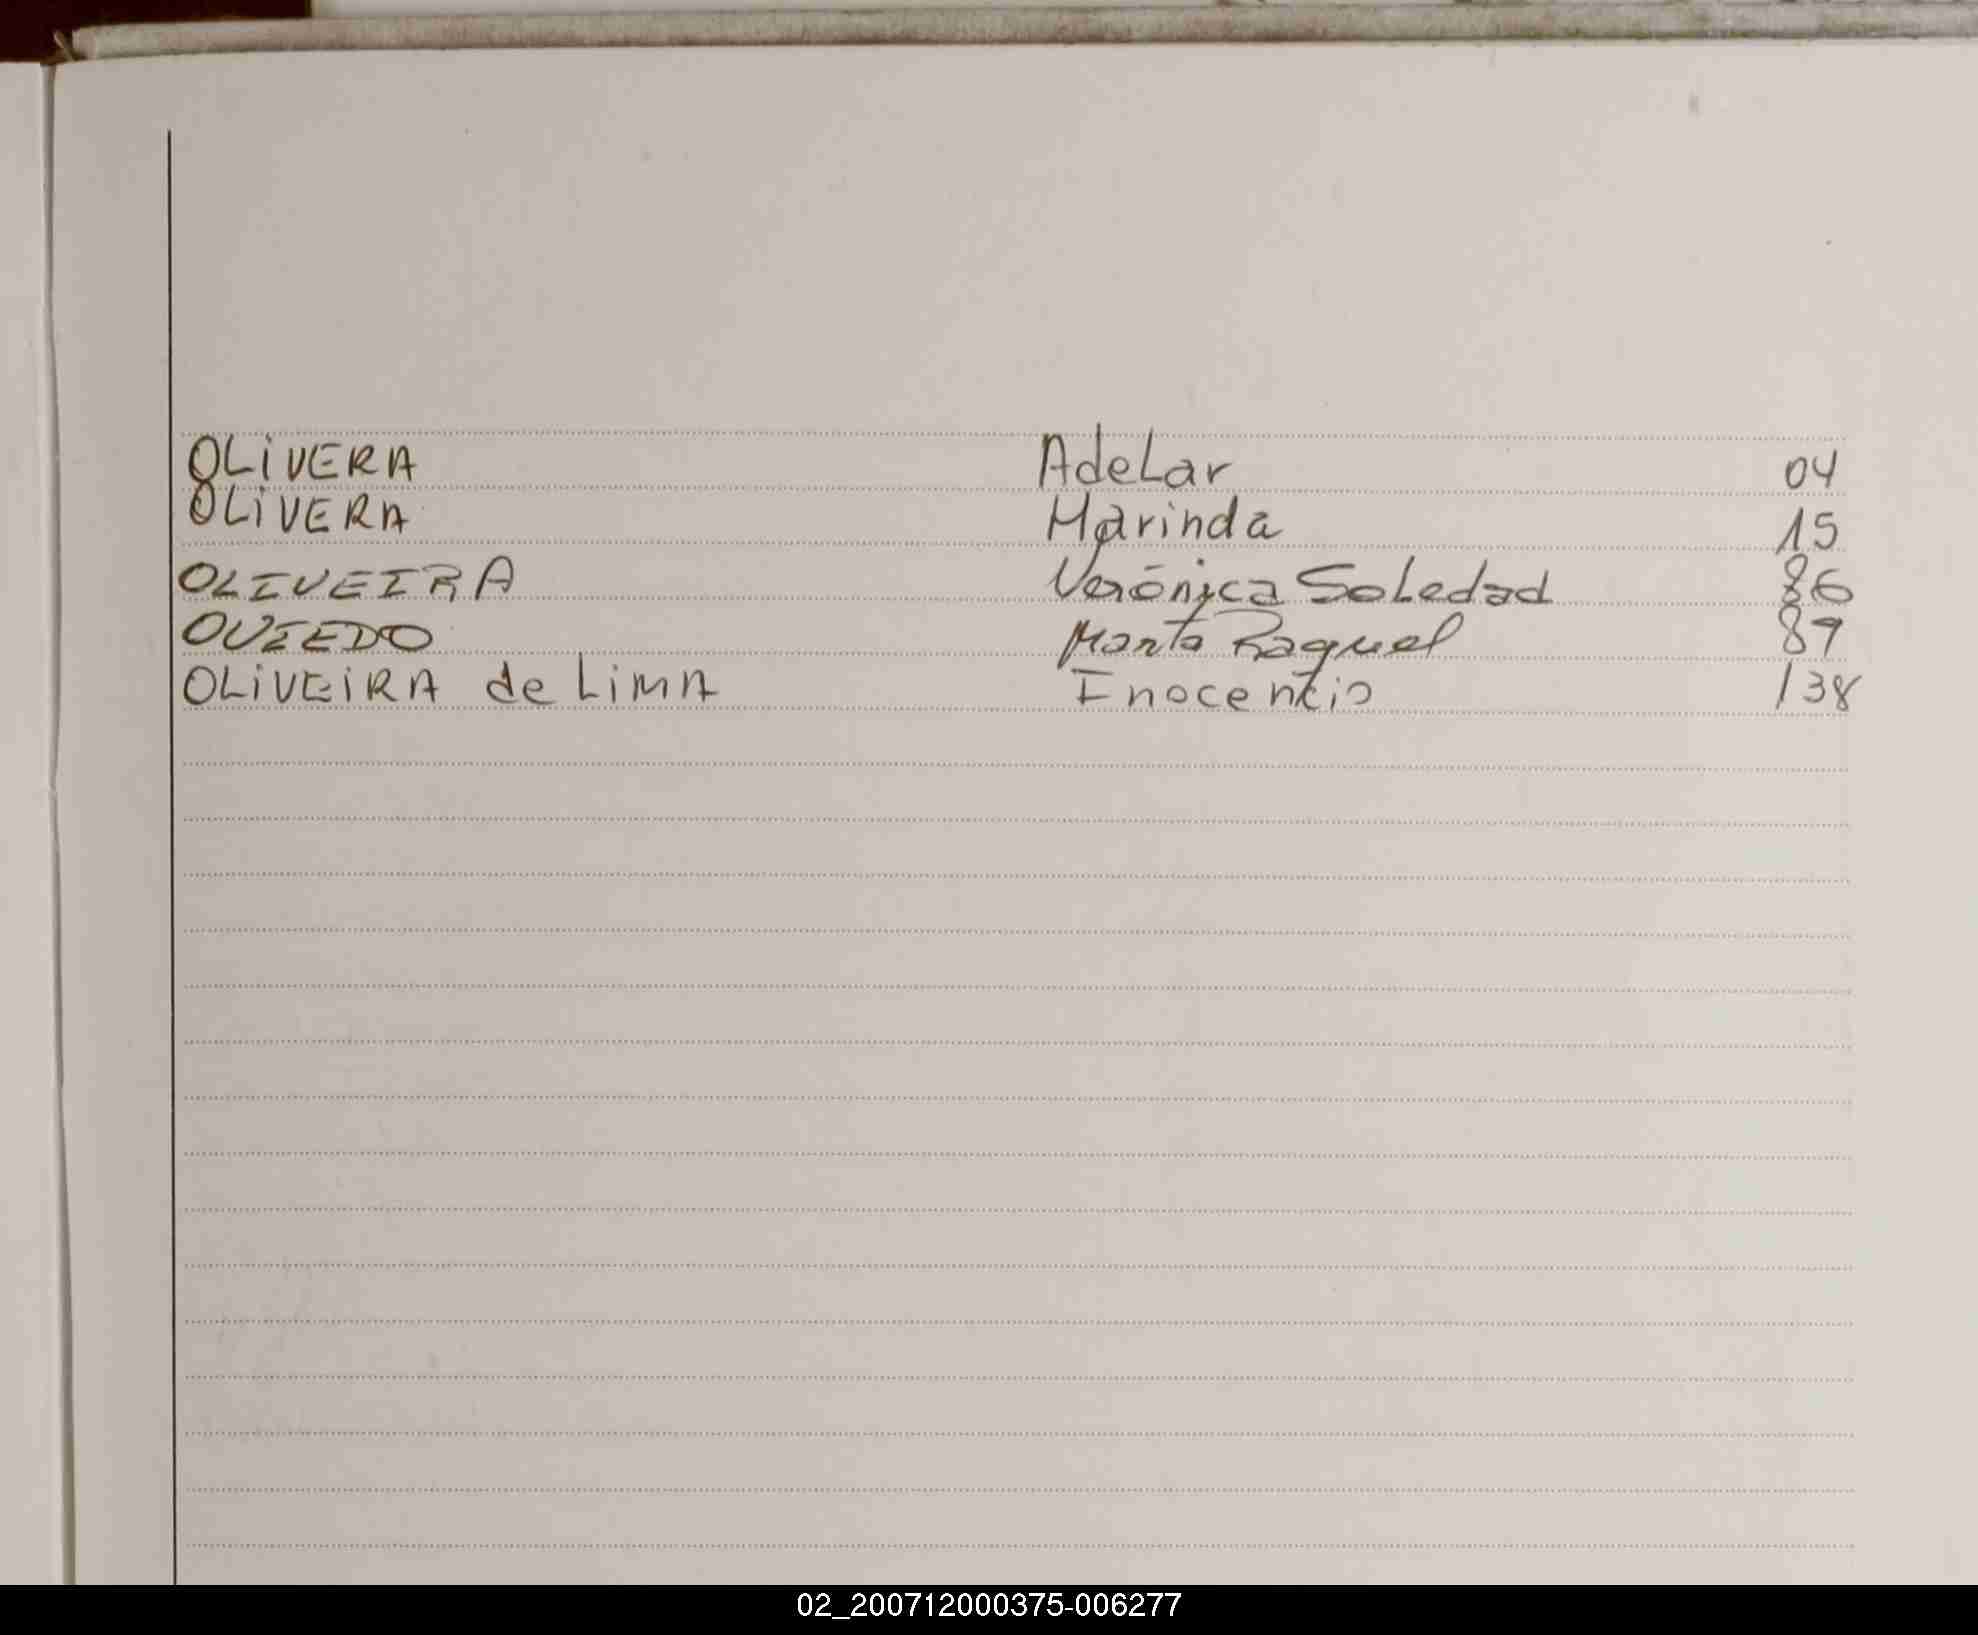 OLIVERA AdeLar 04
OLIVERA Marinda 15
OLIVEIRA Verónica Soledad 86
OVIEDO Marta Raquel 89
OLIVEIRA de LIMA Inocencio 138
02_200712000375-006277